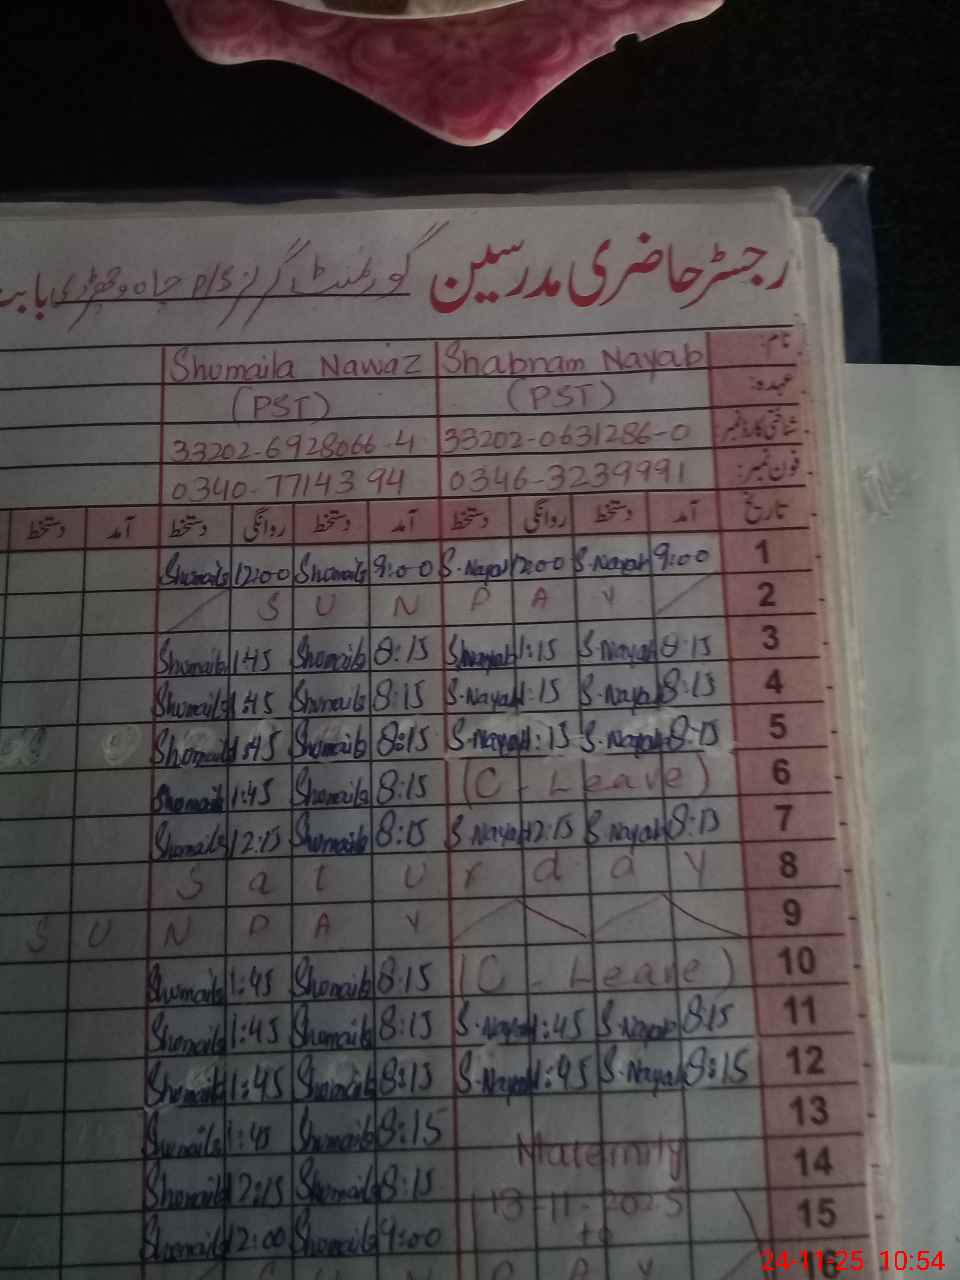 رجسٹر حاضری مدرسین گورنمنٹ گرلز P/S چاہ بابت
نام: Shabnam Nayab Shumaila Nawaz
عہدہ: (PST) (PST)
شناختی کارڈ نمبر: 33202-0631286-0 33202-6928066-4
فون نمبر: 0346-3239991 0340-7714394
تاریخ آمد دستخط روانگی دستخط آمد دستخط روانگی دستخط آمد دستخط
1 9:00 S.Nayab 12:00 S.Nayab 9:00 Shumaila 12:00 Shumaila
2 S U N D A Y
3 8:15 S.Nayab 1:15 S.Nayab 8:15 Shumaila 1:45 Shumaila
4 8:15 S.Nayab 1:15 S.Nayab 8:15 Shumaila 1:45 Shumaila
5 8:15 S.Nayab 1:15 S.Nayab 8:15 Shumaila 1:45 Shumaila
6 (C. Leave) 8:15 Shumaila 1:45 Shumaila
7 8:15 S.Nayab 12:15 S.Nayab 8:15 Shumaila 12:15 Shumaila
8 S a t u r d a y
9 S U N D A Y
10 (C. Leave) 8:15 Shumaila 1:45 Shumaila
11 8:15 S.Nayab 1:45 S.Nayab 8:15 Shumaila 1:45 Shumaila
12 8:15 S.Nayab 1:45 S.Nayab 8:15 Shumaila 1:45 Shumaila
13 8:15 Shumaila 1:45 Shumaila
14 Maternity 8:15 Shumaila 12:15 Shumaila
15 13-11-2025 to 9:00 Shumaila 12:00 Shumaila
16
24-11-25 10:54